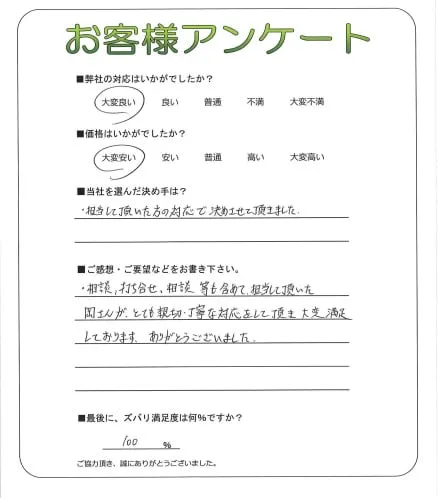 お客様アンケート
■弊社の対応はいかがでしたか？
大変良い 良い 普通 不満 大変不満
■価格はいかがでしたか？
大変安い 安い 普通 高い 大変高い
■当社を選んだ決め手は？
・担当して頂いた方の対応で決めさせて頂きました。
■ご感想・ご要望などをお書き下さい。
・相談,打ち合せ、相談 等も含めて、担当して頂いた
岡さんが、とても親切・丁寧な対応をして頂き 大変満足
しております。ありがとうございました。
■最後に、ズバリ満足度は何%ですか？
100 %
ご協力頂き、誠にありがとうございました。